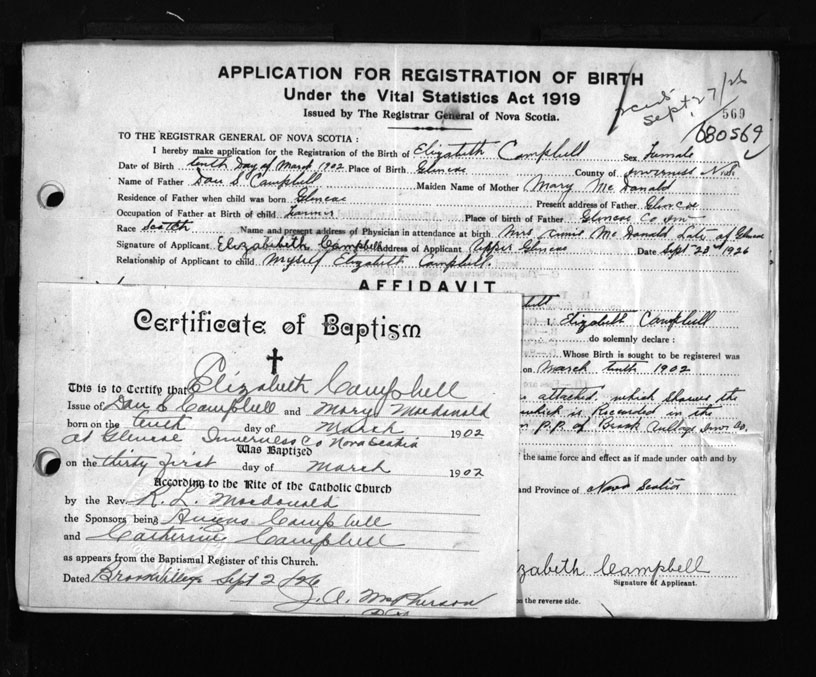 APPLICATION FOR REGISTRATION OF BIRTH
Under the Vital Statistics Act 1919
Issued by The Registrar General of Nova Scotia.
Sept. 27/26
569
680569
TO THE REGISTRAR GENERAL OF NOVA SCOTIA :
I hereby make application for the Registration of the Birth of Elizabeth Campbell Sex Female
Date of Birth tenth Day of March 1902 Place of Birth Glencoe County of Inverness N.S.
Name of Father Dan S Campbell Maiden Name of Mother Mary McDonald
Residence of Father when child was born Glencoe Present address of Father Glencoe
Occupation of Father at Birth of child Farmer Place of birth of Father Glencoe Co Inv
Race Scotch Name and present address of Physician in attendance at birth Mrs McDonald Late of Glencoe
Signature of Applicant Elizabeth Campbell Address of Applicant Upper Glencoe Date Sept 20 1926
Relationship of Applicant to child Myself Elizabeth Campbell.
AFFIDAVIT
I, Elizabeth Campbell
do solemnly declare :
Whose Birth is sought to be registered was
on March tenth 1902
attached, which shows the
which is Recorded in the
P.P. of Brook Village Inv. Co.
the same force and effect as if made under oath and by
and Province of Nova Scotia
zabeth Campbell
Signature of Applicant.
the reverse side.
Certificate of Baptism
This is to Certify that Elizabeth Campbell
Issue of Dan S Campbell and Mary Macdonald
born on the tenth day of March 1902
at Glencoe Inverness Co Nova Scotia
Was Baptized
on the thirty first day of March 1902
According to the Rite of the Catholic Church
by the Rev. R. L. Macdonald
the Sponsors being Angus Campbell
and Catherine Campbell
as appears from the Baptismal Register of this Church.
Dated Brook Village Sept 2/26
J. A. McPherson